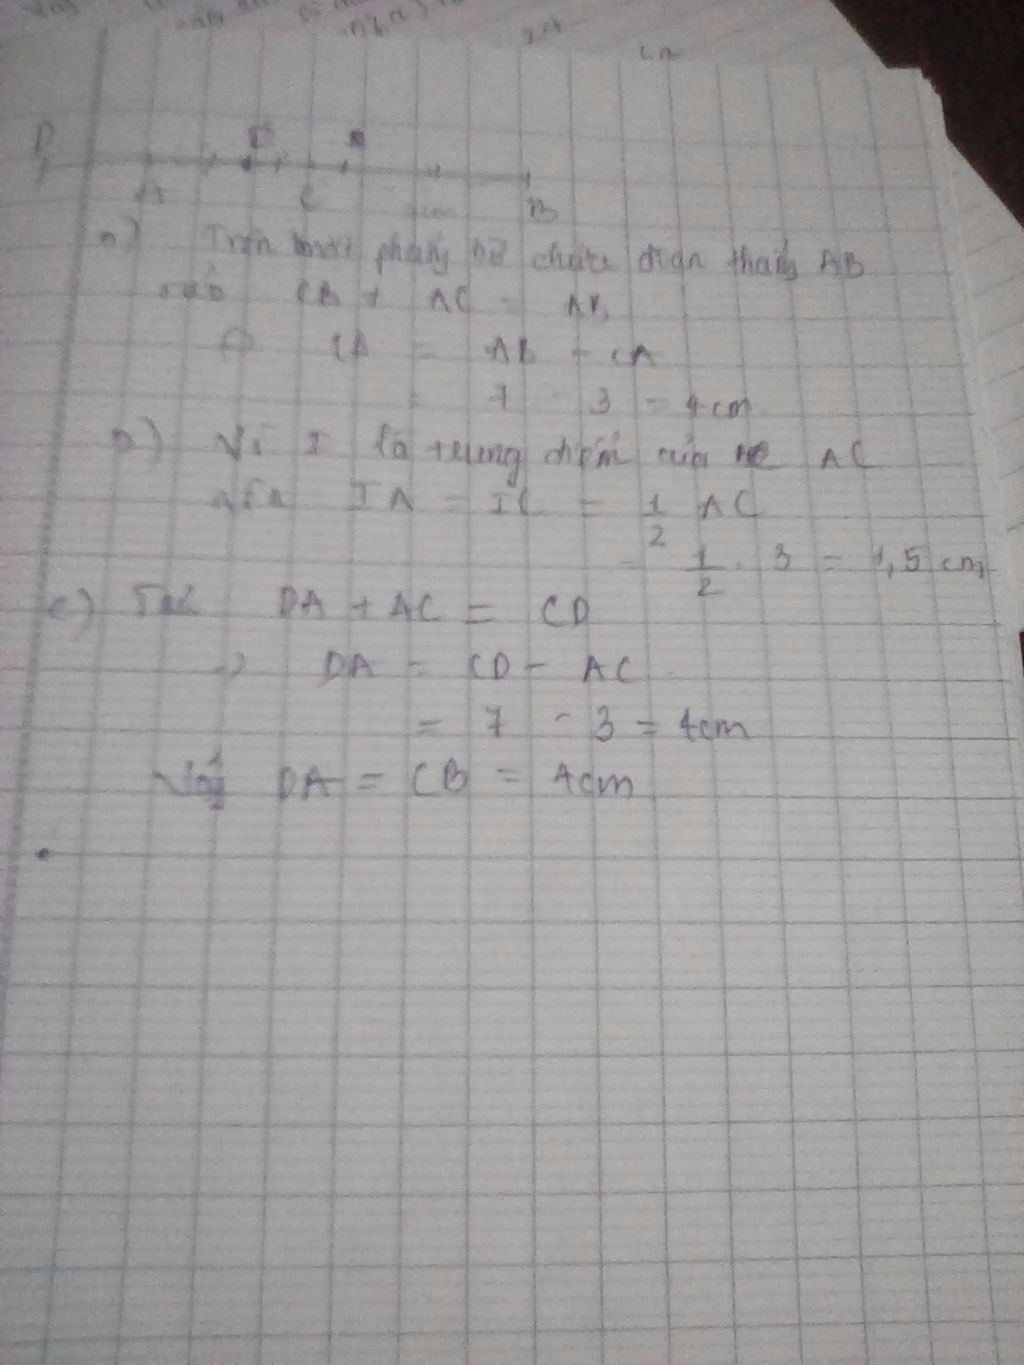 D
A
C
B
a) Trên phẳng bờ chứa đoạn thẳng AB
CB + AC = AB
= AB - CA
= 7 - 3 = 4 cm
b) Vì I là trung điểm của AC
nên IA = IC = 1/2 AC
= 1/2 . 3 = 1,5 cm
c) DA + AC = CD
=> DA = CD - AC
= 7 - 3 = 4cm
Vậy DA = CB = 4cm